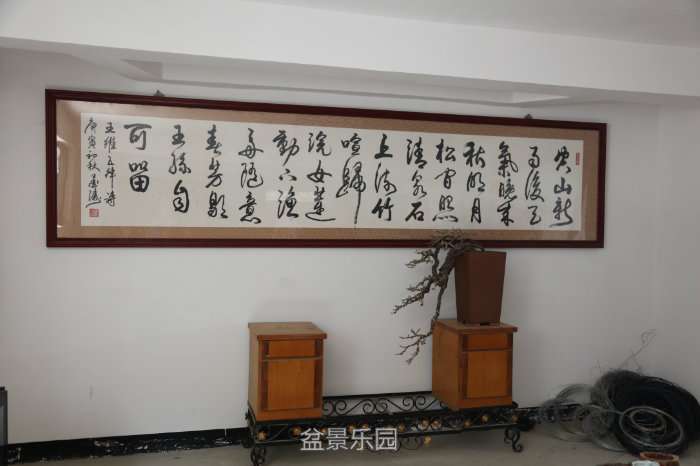 空山新
雨後天
氣晚来
秋明月
松间照
清泉石
上流竹
喧歸
浣女莲
動下渔
舟随意
春芳歇
王孫自
可留
王維五律诗
庚寅初秋
盆景乐园